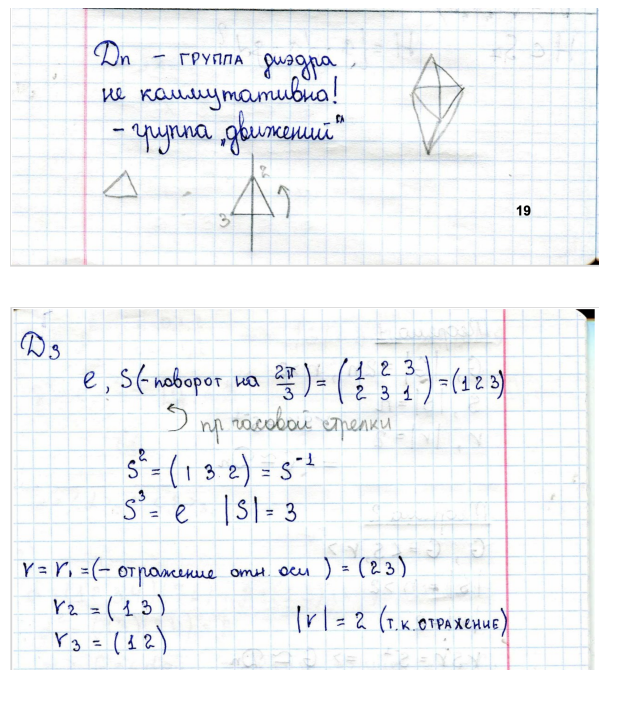 Dn – группа диэдра
не коммутативна!
– группа „движений"
2
3
19
D3
e, S (– поворот на 2π/3) = (1 2 3 / 2 3 1) = (1 2 3)
пр часовой стрелки
S² = (1 3 2) = S⁻¹
S³ = e |S| = 3
r = r₁ = (– отражение отн. оси ) = (2 3)
r₂ = (1 3)
|r| = 2 (т.к. отражение)
r₃ = (1 2)